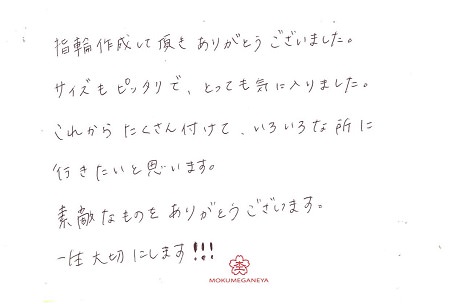 指輪作成して頂きありがとうございました。
サイズもピッタリで、とっても気に入りました。
これからたくさん付けて、いろいろな所に
行きたいと思います。
素敵なものをありがとうございます。
一生大切にします!!!
MOKUMEGANEYA